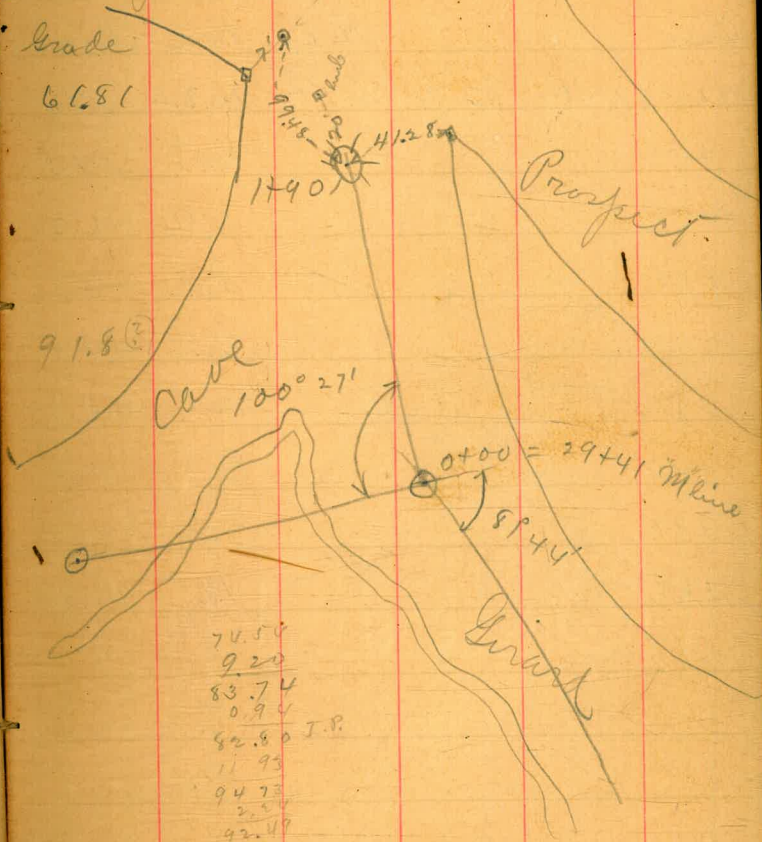 Grade
61.81
7'
99.48
hub
120
41.28
1+90
Prospect
91.8 (?)
Cave
100° 27'
0+00 = 29+41 M line
81° 44'
Girard
74.54
9.20
83.74
0.94
82.80 T.P.
11 93
94 73
2.24
92.49